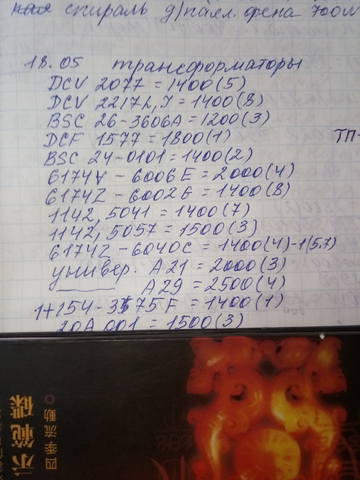 спираль д/паял. фена 700w
18.05 трансформаторы
DCV 2077 = 1400(5)
DCV 2217L,J = 1400(8)
BSC 26-3606A = 1200(3)
DCF 1577 = 1800(1)
ТП-
BSC 24-0101 = 1400(2)
6174V - 6006E = 2000(4)
6174Z - 6002G = 1400(8)
1142, 5041 = 1400(7)
1142, 5057 = 1500(3)
6174Z - 6040C = 1400(4)-1(5.7)
универ. A21 = 2000(3)
A29 = 2500(4)
1+154-3575F = 1400(1)
20A 001 = 1500(3)
示範碟
四季流動